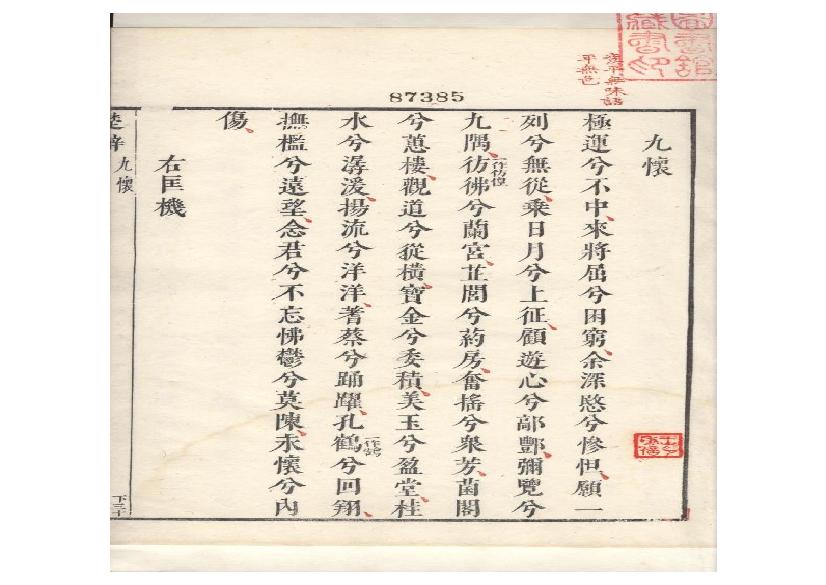 87385
九懷
極運兮不中來將屈兮困窮余深愍兮慘怛願一
列兮無從乘日月兮上征顧遊心兮鄗酆彌覽兮
九隅彷彿一作彷徨兮蘭宮芷閭兮葯房奮搖兮衆芳菌閣
兮蕙樓觀道兮從橫寶金兮委積美玉兮盈堂桂
水兮潺湲揚流兮洋洋蓍蔡兮踊躍孔鶴一作鵠兮回翔
撫檻兮遠望念君兮不忘怫鬱兮莫陳永懷兮內
傷
右匡機
楚辭 九懷